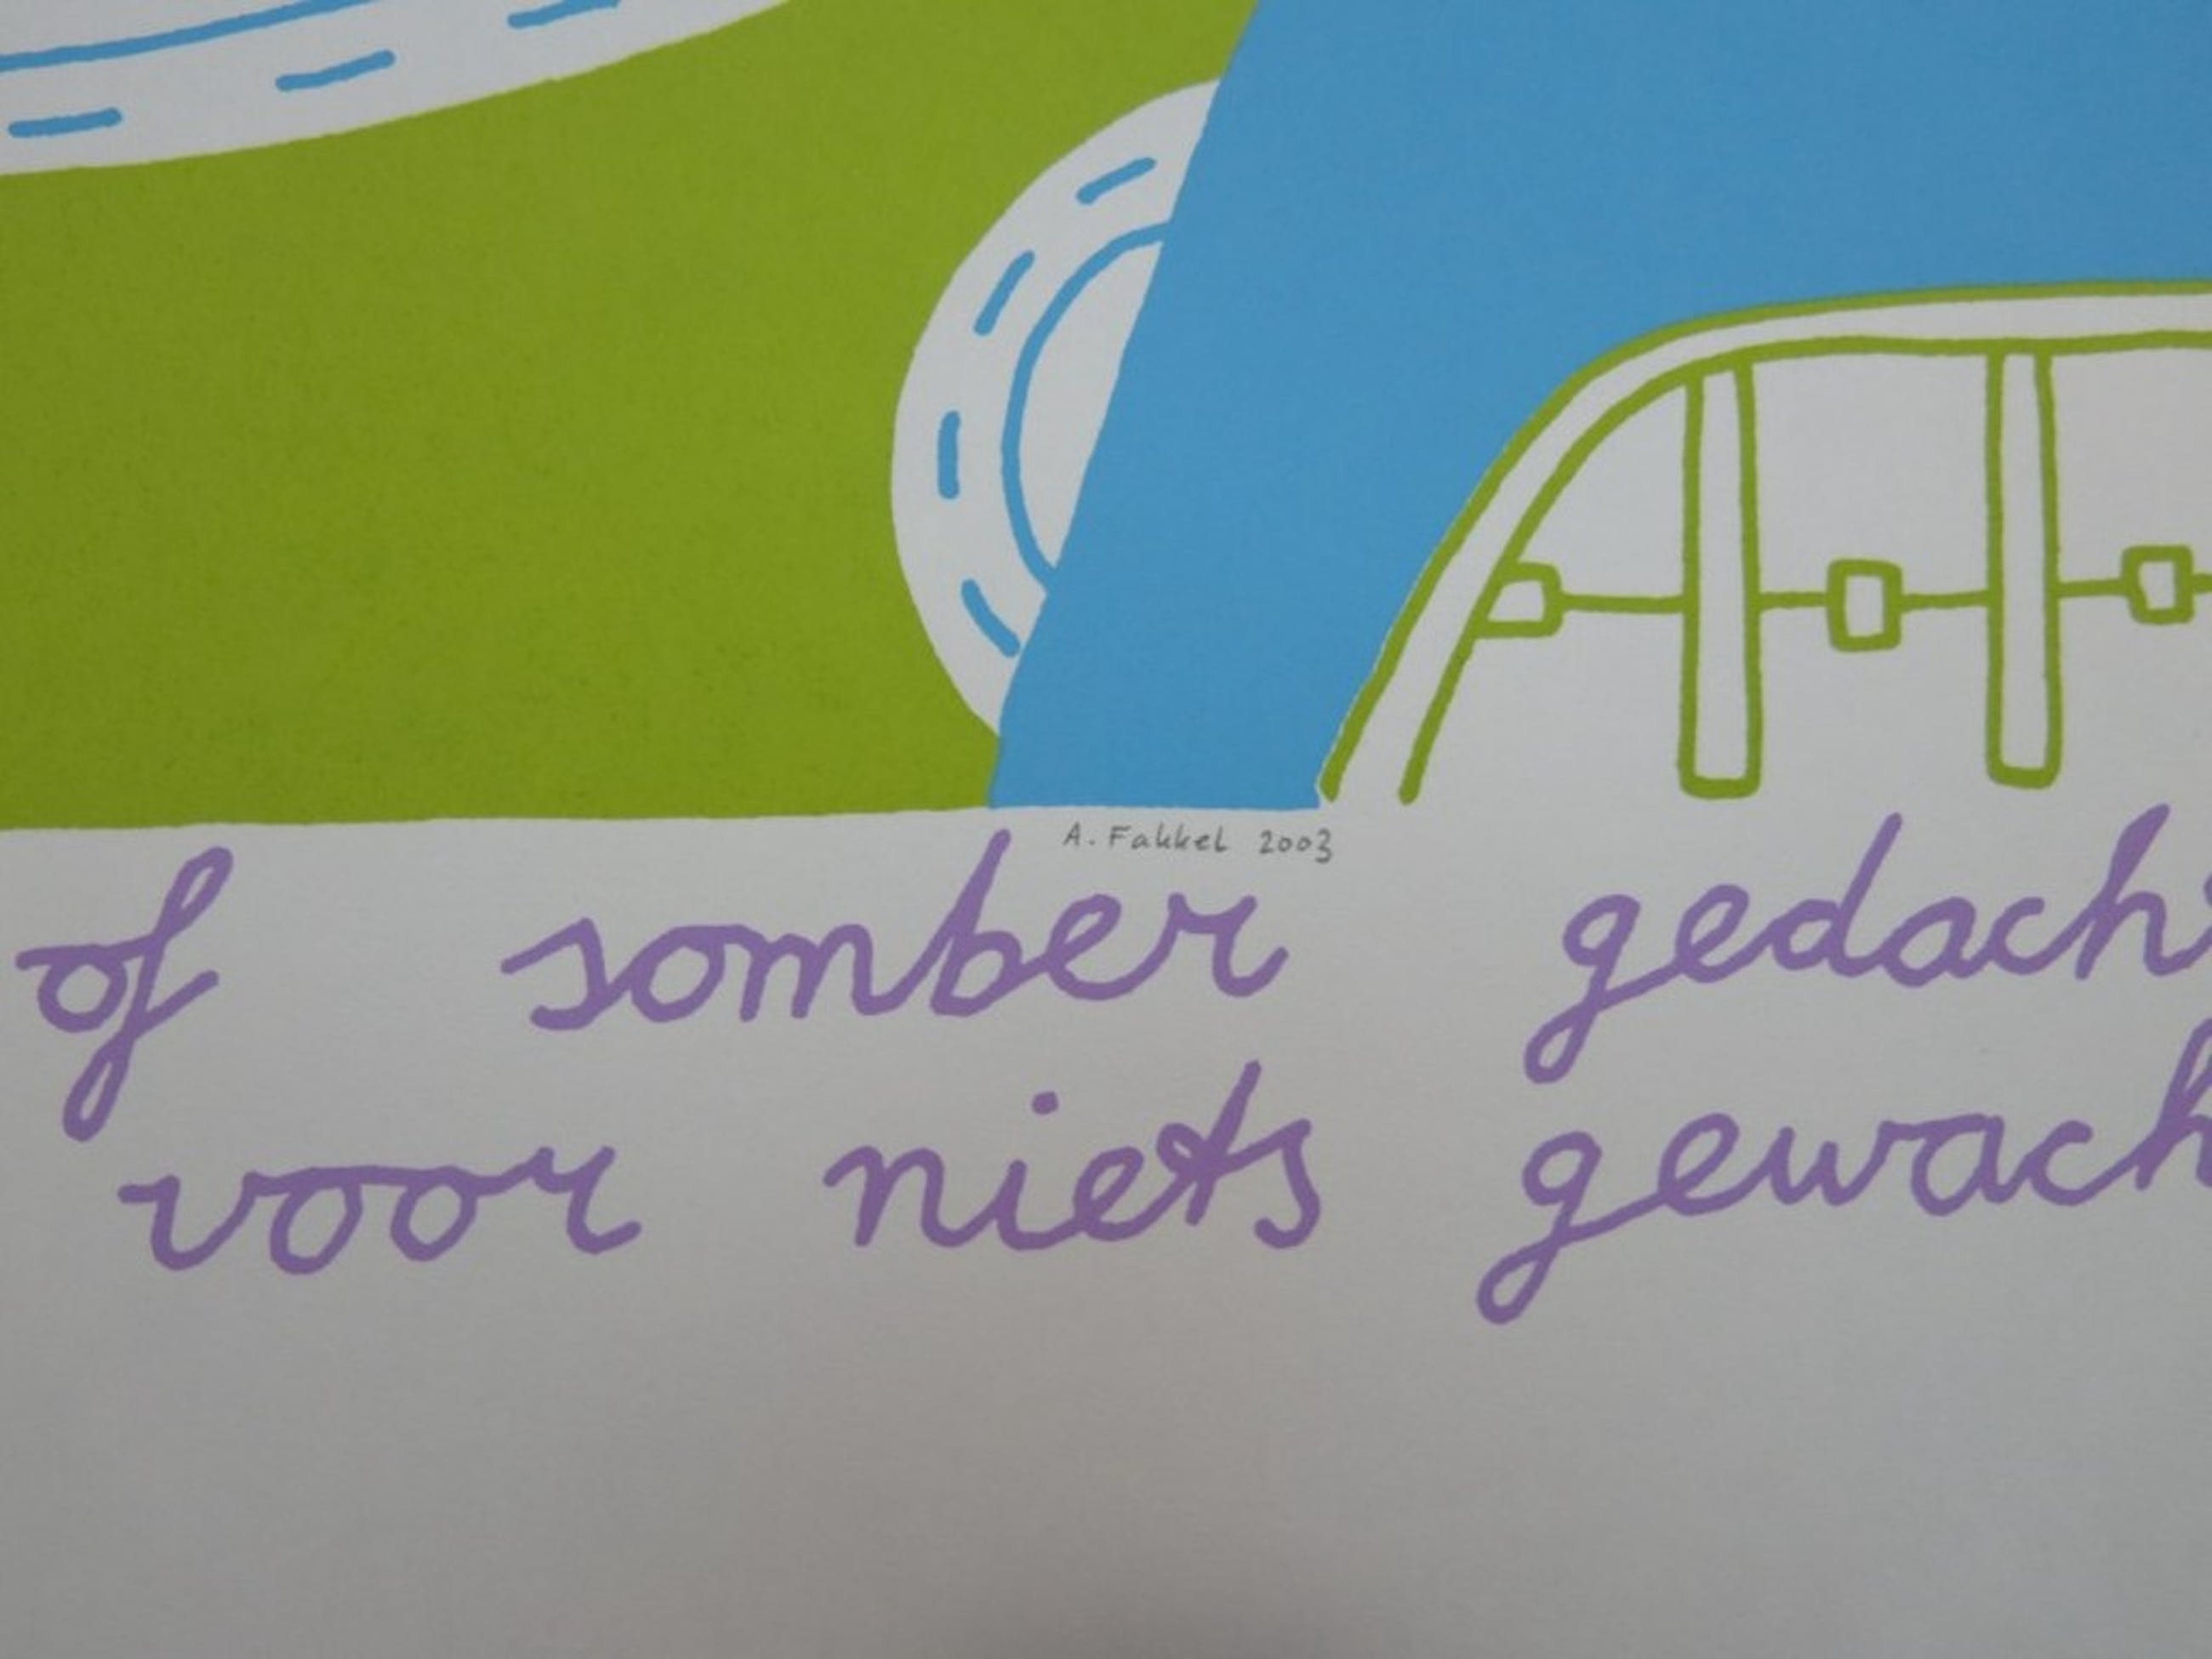 A. Fakkel 2003
of somber gedach
voor niets gewach